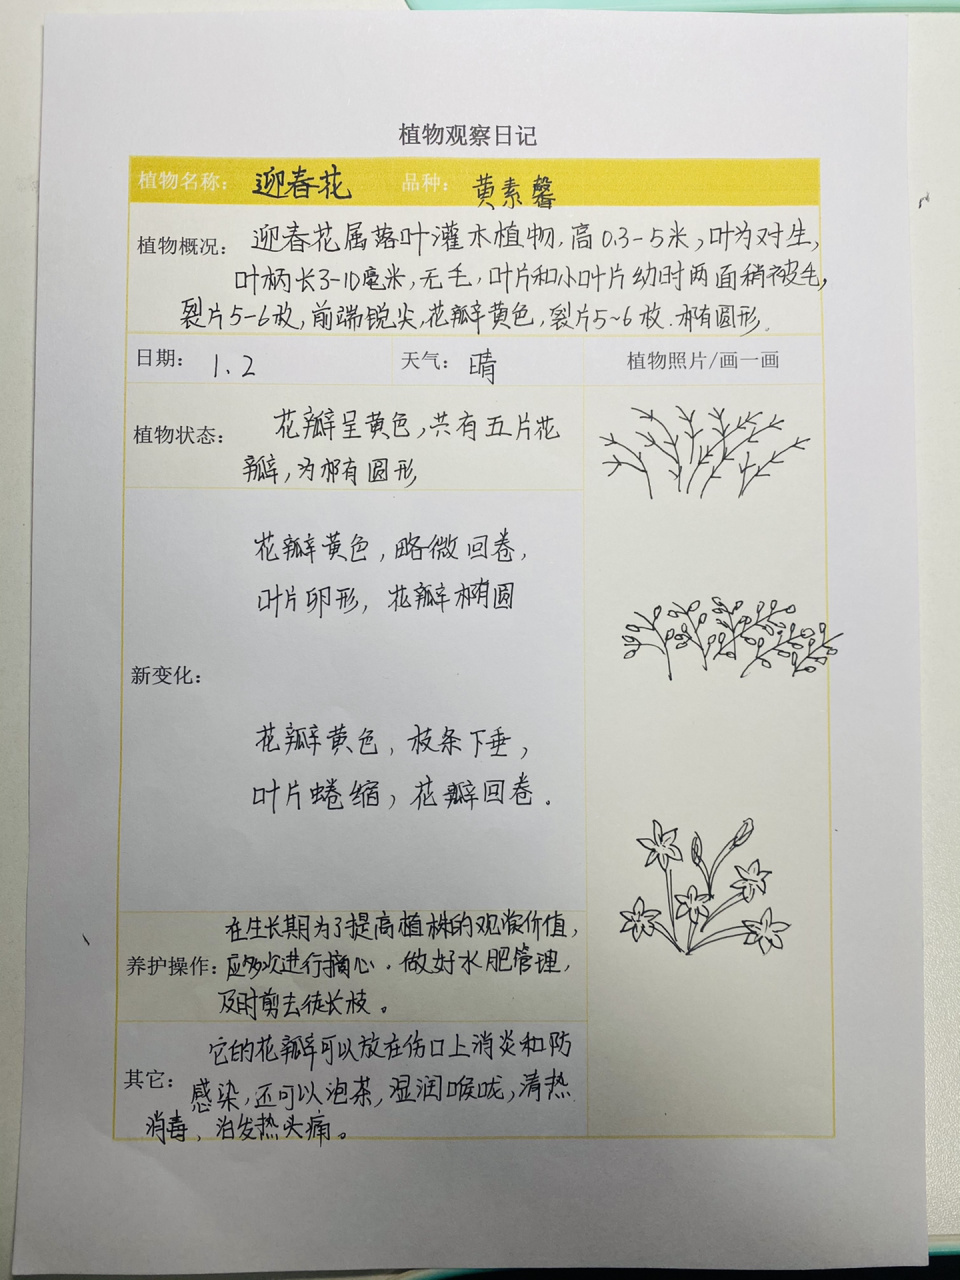 植物观察日记
植物名称： 迎春花 品种： 黄素馨
植物概况： 迎春花属落叶灌木植物，高0.3-5米，叶为对生，
叶柄长3-10毫米，无毛，叶片和小叶片幼时两面稍被毛，
裂片5-6枚，前端锐尖，花瓣黄色，裂片5~6枚.椭圆形.
日期： 1.2 天气： 晴 植物照片/画一画
植物状态： 花瓣呈黄色，共有五片花
瓣，为椭圆形
花瓣黄色，略微回卷，
叶片卵形，花瓣椭圆
新变化：
花瓣黄色，枝条下垂，
叶片蜷缩，花瓣回卷.
在生长期为了提高植株的观赏价值，
养护操作： 应多次进行摘心.做好水肥管理，
及时剪去徒长枝。
它的花瓣可以放在伤口上消炎和防
其它： 感染，还可以泡茶，湿润喉咙，清热
消毒，治发热头痛。